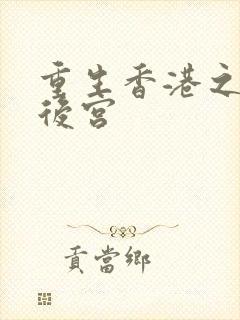 重生香港之
後宮
貢當鄉